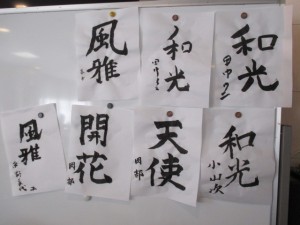 風雅
和光
和光
田中
風雅
開花
岡部
天使
岡部
和光
小山次